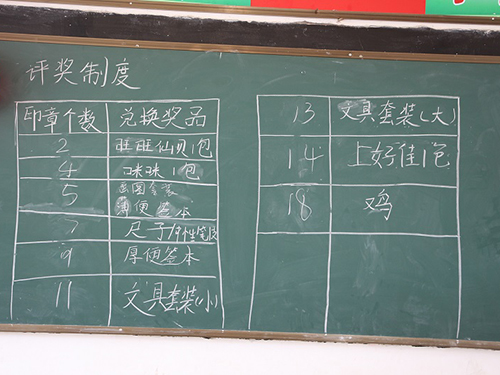 评奖制度
印章个数 兑换奖品
2 旺旺仙贝1包
4 咪咪1包
5
薄便签本
7 尺子/
9 厚便签本
11 文具套装(小)
13 文具套装(大)
14 上好佳1包
18 鸡